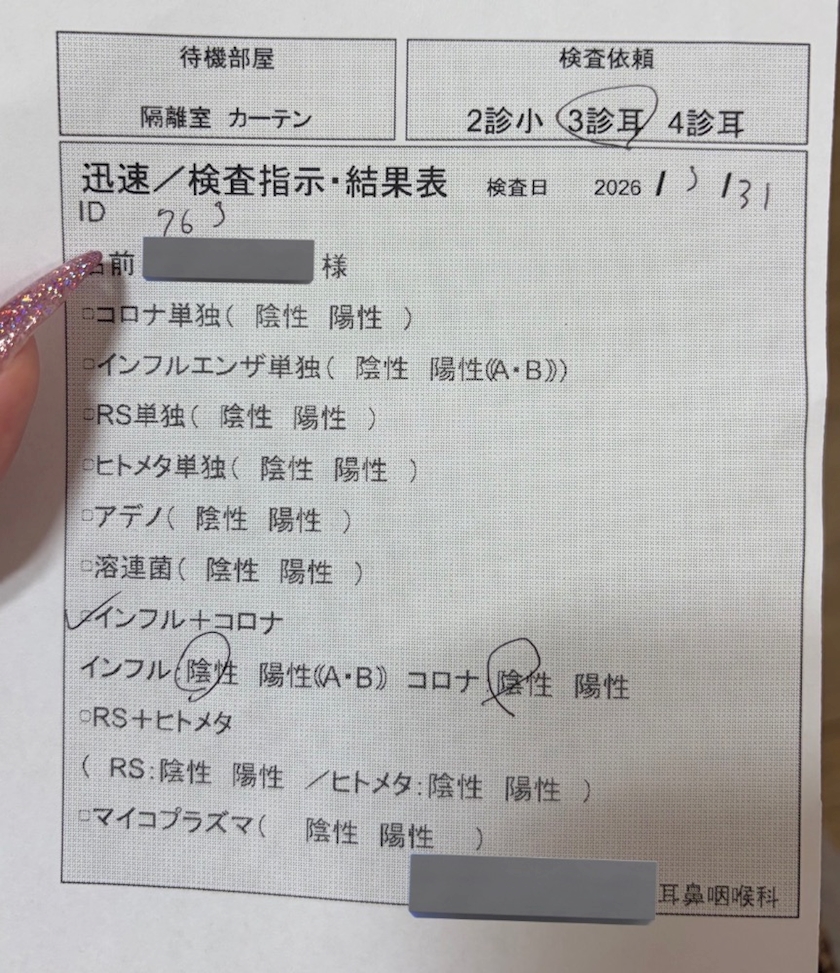 待機部屋
隔離室 カーテン
検査依頼
2診小 3診耳 4診耳
迅速/検査指示・結果表 検査日 2026 / 3 / 31
ID 763
名前 様
□コロナ単独( 陰性 陽性 )
□インフルエンザ単独( 陰性 陽性((A・B)))
□RS単独( 陰性 陽性 )
□ヒトメタ単独( 陰性 陽性 )
□アデノ( 陰性 陽性 )
□溶連菌( 陰性 陽性 )
□インフル+コロナ
インフル:陰性 陽性((A・B)) コロナ:陰性 陽性
□RS+ヒトメタ
( RS:陰性 陽性 /ヒトメタ:陰性 陽性 )
□マイコプラズマ( 陰性 陽性 )
耳鼻咽喉科